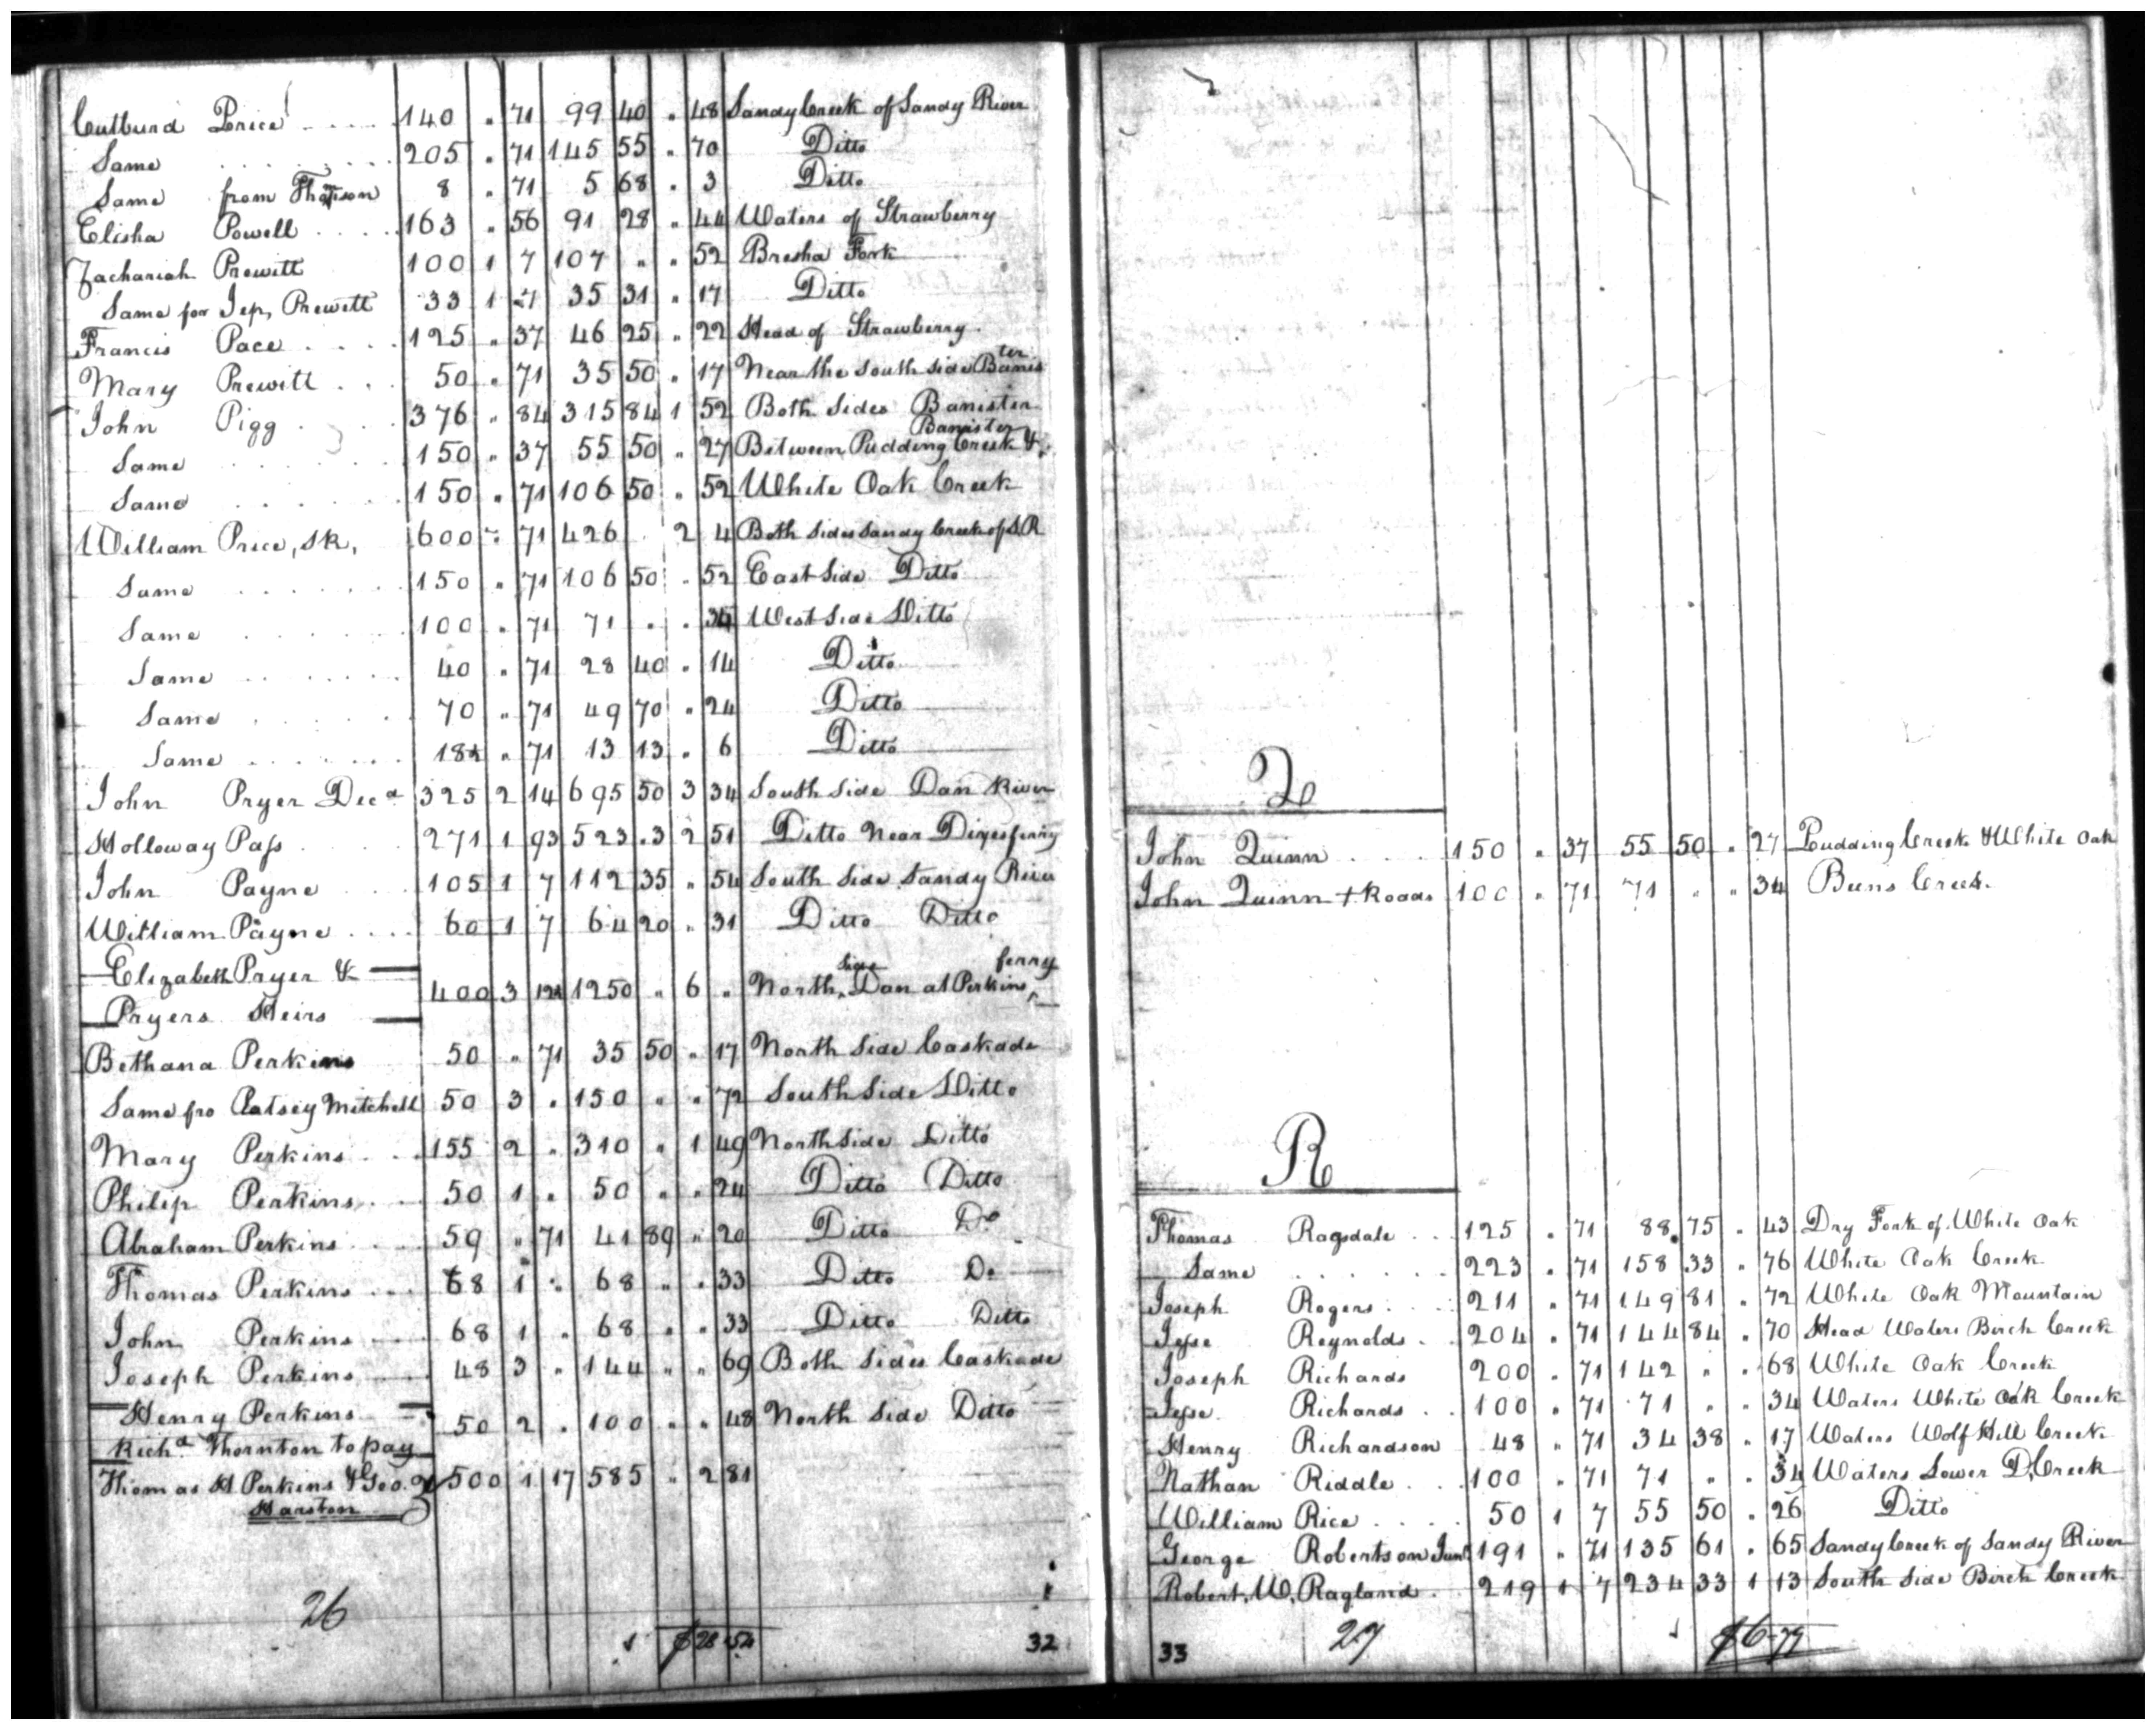 Cutburd Price .... 140 " 71 99 40 " 48 Sandy Creek of Sandy River
Same ........ 205 " 71 145 55 " 70 Ditto
Same from 8 " 71 5 68 " 3 Ditto
Elisha Powell .... 163 " 56 91 28 " 44 Waters of Strawberry
Zachariah Prewitt 100 1 7 107 " " 52 Bresha Fork
Same for Jep, Prewett 33 1 7 35 31 " 17 Ditto
Francis Pace .... 125 " 37 46 25 " 22 Head of Strawberry
Mary Prewitt ... 50 " 71 35 50 " 17 Near the South Side Banister
John Pigg ... 376 " 84 315 84 1 52 Both Sides Banister
Same ...... 150 " 37 55 50 " 27 Between Pudding Creek & Banister
Same ..... 150 " 71 106 50 " 52 White Oak Creek
William Price, SR, 600 " 71 426 2 4 Both Sides Sandy Creek of S R
Same ...... 150 " 71 106 50 " 52 East Side Ditto
Same ...... 100 " 71 71 " " 34 West Side Ditto
Same ...... 40 " 71 28 40 " 14 Ditto
Same ...... 70 " 71 49 70 " 24 Ditto
Same ...... 18½ " 71 13 13 " 6 Ditto
John Pryer Decd 325 2 14 695 50 3 34 South Side Dan River
Holloway Pass .... 271 1 93 523 .3 2 51 Ditto Near Dixes ferry
John Payne .... 105 1 7 112 35 " 54 South Side Sandy River
William Payne .... 60 1 7 64 20 " 31 Ditto Ditto
Elizabeth Pryer &
Pryers Heirs 400 3 12½ 1250 " 6 " North Side Dan at Perkins ferry
Bethana Perkins 50 " 71 35 50 " 17 North Side Caskade
Same fro Patsey Mitchell 50 3 " 150 " " 72 South Side Ditto
Mary Perkins ... 155 2 " 310 " 1 49 North Side Ditto
Philip Perkins ... 50 1 " 50 " " 24 Ditto Ditto
Abraham Perkins ... 59 " 71 41 89 " 20 Ditto Do
Thomas Perkins ... 68 1 " 68 " " 33 Ditto Do
John Perkins 68 1 " 68 " " 33 Ditto Ditto
Joseph Perkins 48 3 " 144 " " 69 Both Sides Caskade
Henry Perkins
Richd Thornton to pay 50 2 " 100 " " 48 North Side Ditto
Thomas H Perkins & Geo. 500 1 17 585 " 2 81
Harston
26
$28.54
32
Q
John Quinn .... 150 " 37 55 50 " 27 Pudding Creek & White Oak
John Quinn + Roads 100 " 71 71 " " 34 Burns Creek
R
Thomas Ragsdale ... 125 " 71 88 75 " 43 Dry Fork of White Oak
Same ...... 223 " 71 158 33 " 76 White Oak Creek
Joseph Rogers ... 211 " 71 149 81 " 72 White Oak Mountain
Jesse Reynolds .. 204 " 71 144 84 " 70 Head Waters Birch Creek
Joseph Richards 200 " 71 142 " " 68 White Oak Creek
Jesse Richards .. 100 " 71 71 " " 34 Waters White Oak Creek
Henry Richardson 48 " 71 34 38 " 17 Waters Wolf Hill Creek
Nathan Riddle ... 100 " 71 71 " " 34 Waters Lower D, Creek
William Rice .... 50 1 7 55 50 " 26 Ditto
George Robertson Junr 191 " 71 135 61 " 65 Sandy Creek of Sandy River
Robert, W, Ragland . 219 1 7 234 33 1 13 South Side Birch Creek
33
27
$6-77